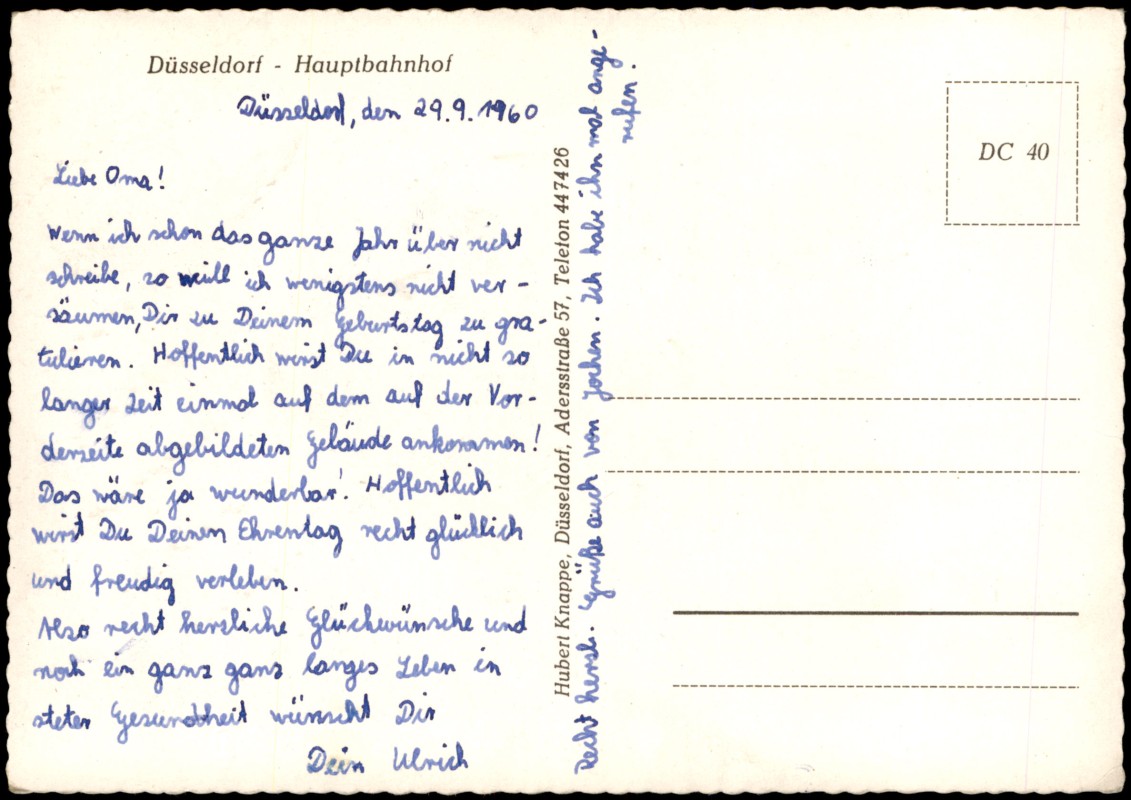 Düsseldorf - Hauptbahnhof
Düsseldorf, den 29.9.1960
Liebe Oma!
Wenn ich schon das ganze Jahr über nicht
schreibe, so will ich wenigstens nicht ver-
säumen, Dir zu Deinem Geburtstag zu gra-
tulieren. Hoffentlich wirst Du in nicht so
langer Zeit einmal auf dem auf der Vor-
derseite abgebildeten Gebäude ankommen!
Das wäre ja wunderbar! Hoffentlich
wirst Du Deinen Ehrentag recht glücklich
und freudig verleben.
Also recht herzliche Glückwünsche und
noch ein ganz ganz langes Leben in
steter Gesundheit wünscht Dir
Dein Ulrich
Hubert Knappe, Düsseldorf, Adersstraße 57, Telefon 447426
Recht herzl. Grüße auch von Jochen. Ich habe ihn mal ange-
rufen.
DC 40